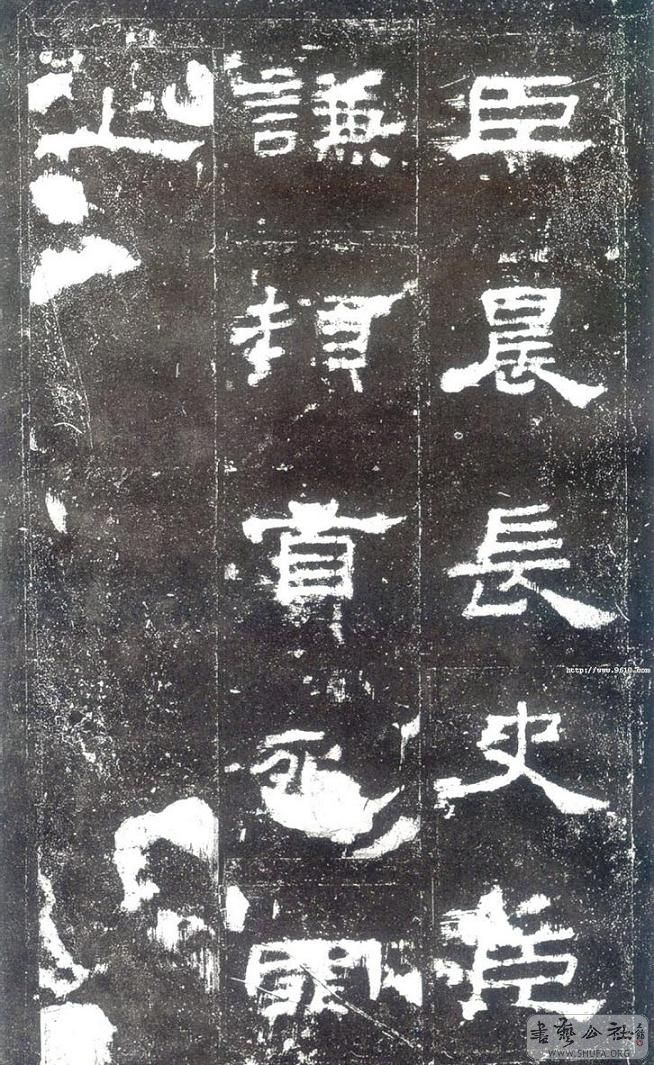 臣晨長史臣
謙頓首死罪
http://www.9610.com
書藝公社
WWW.SHUFA.ORG